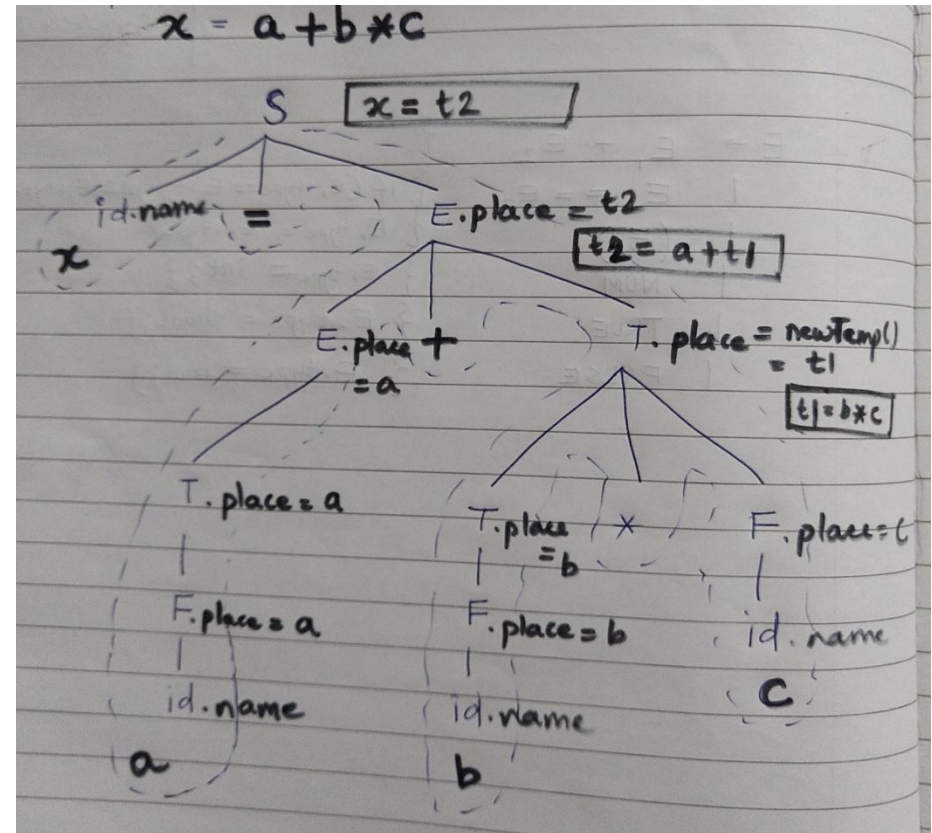 x = a+b*c
S x = t2
id.name = E.place = t2
x
t2 = a+t1
E.place + T.place = newTemp()
= a = t1
t1=b*c
T.place = a
T.place * F.place=c
= b
F.place = a F.place = b id.name
id.name id.name c
a b